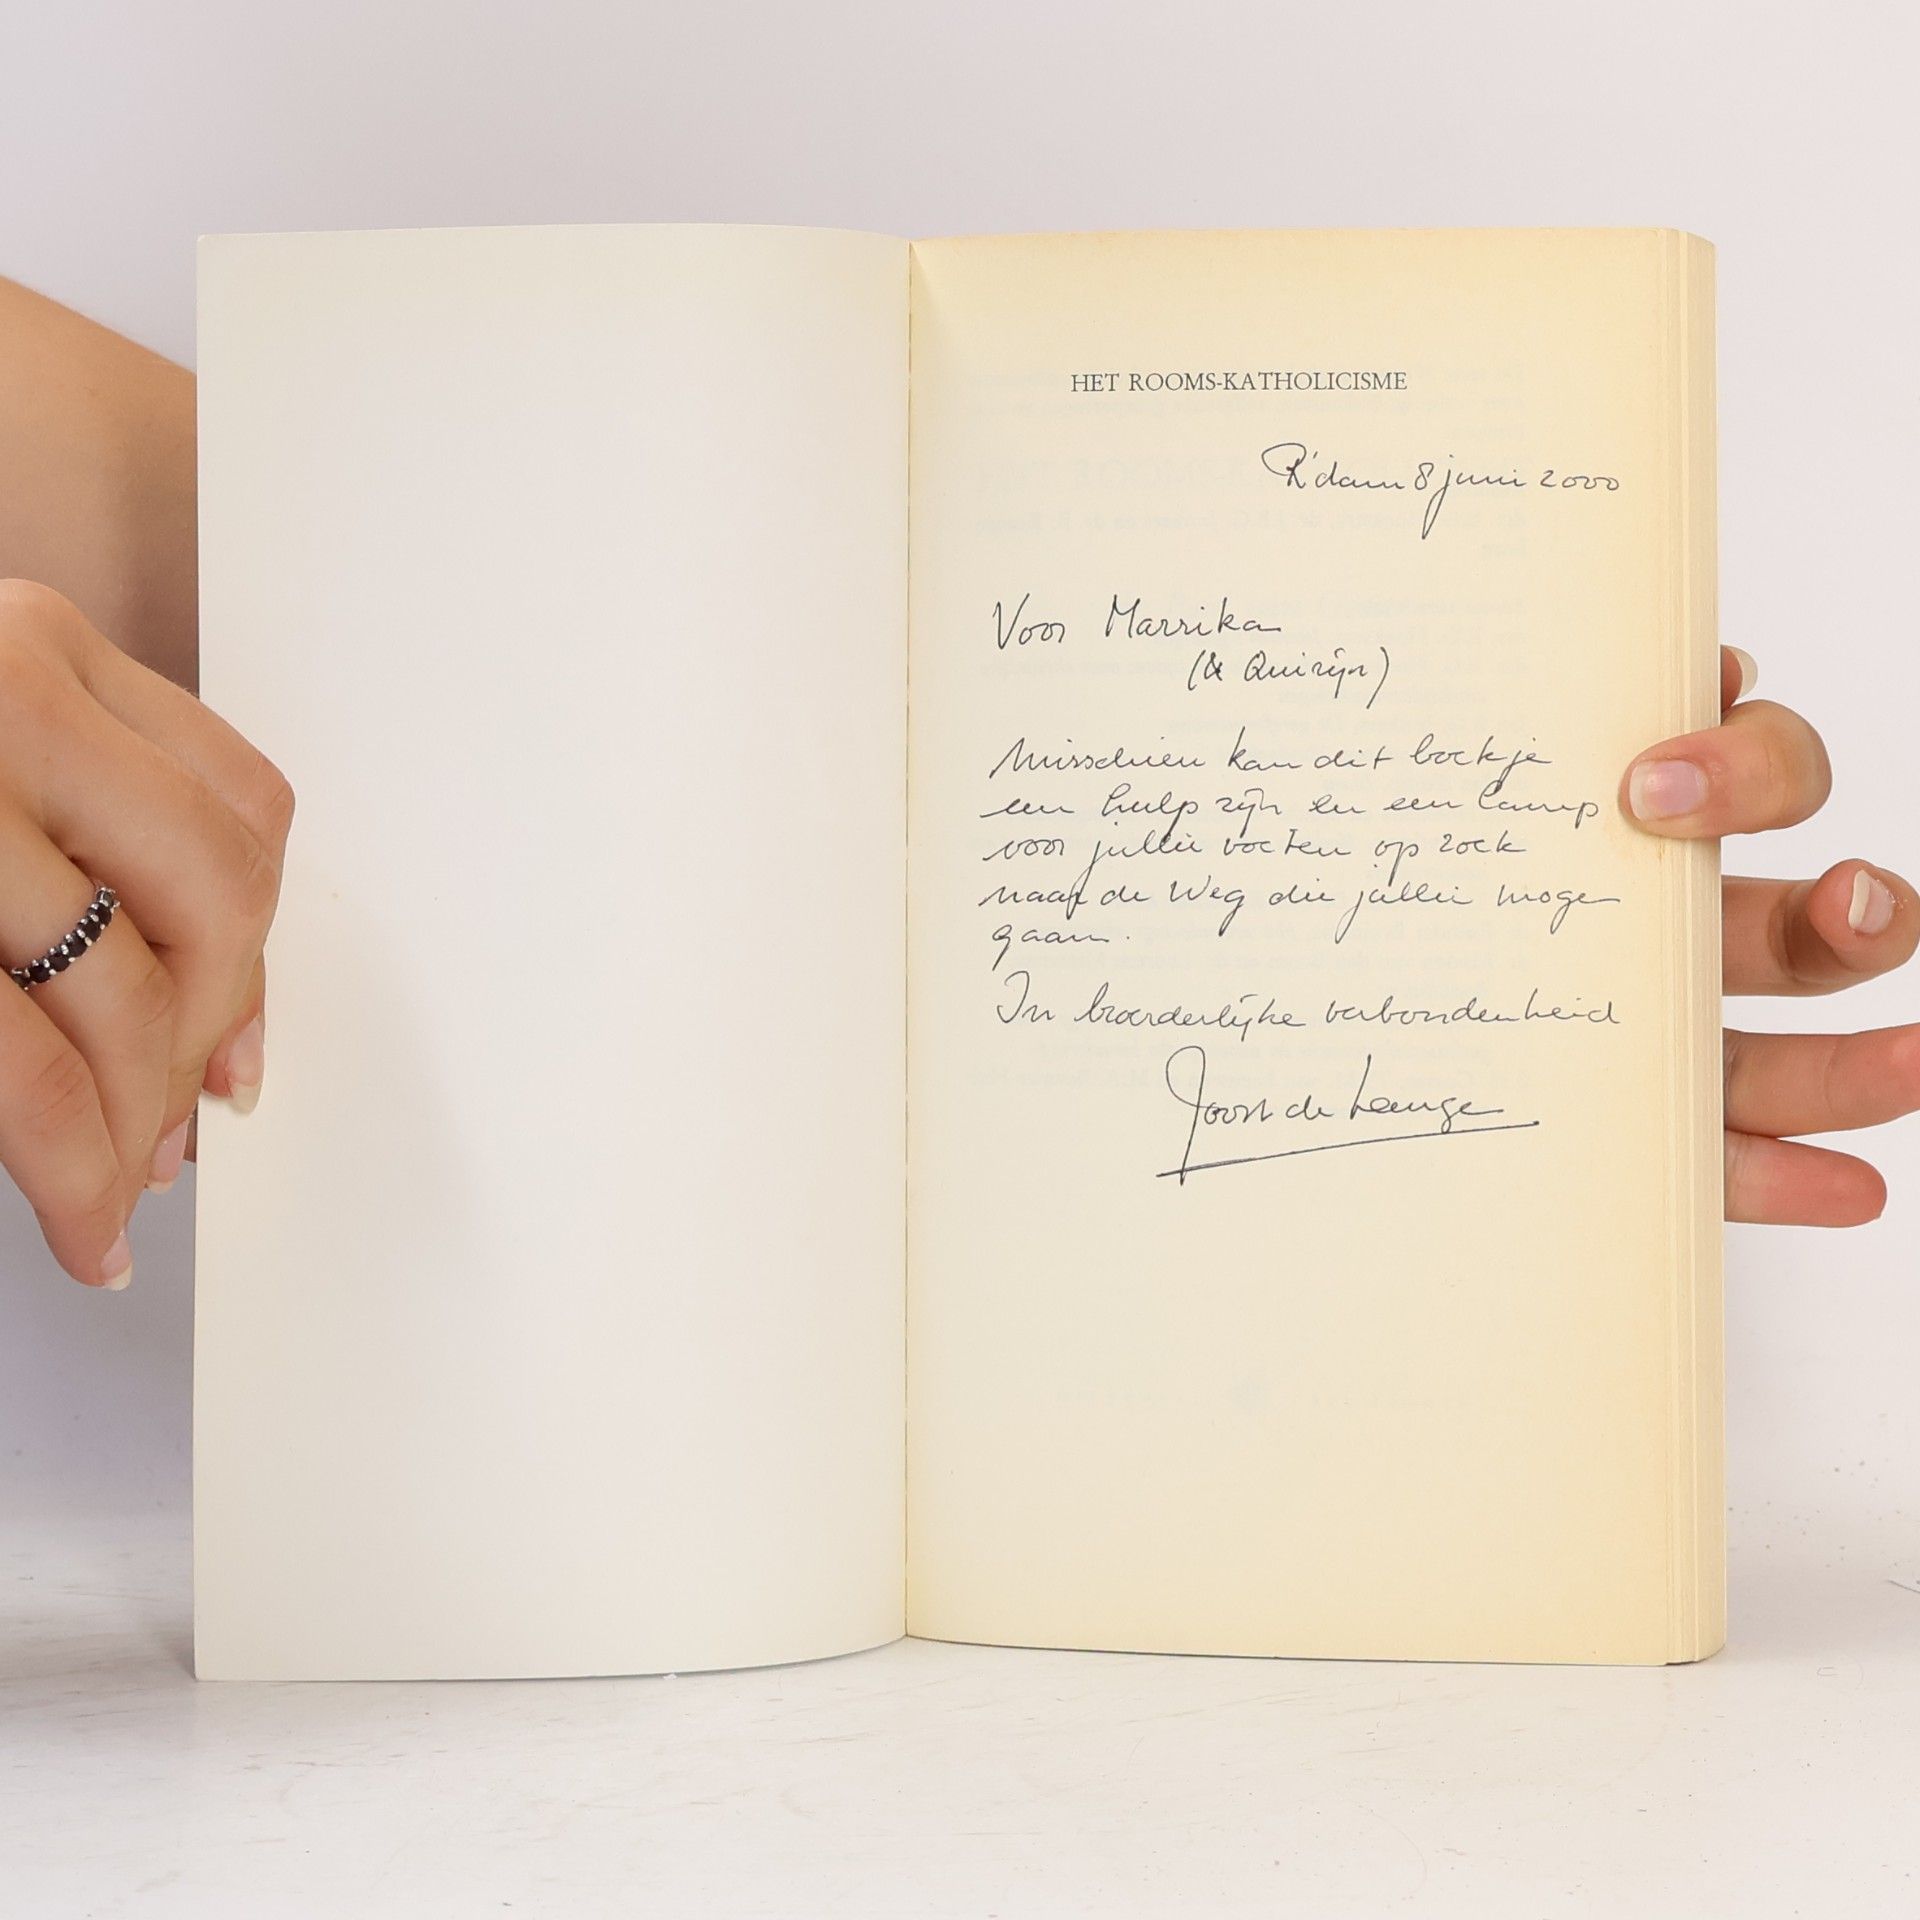 HET ROOMS-KATHOLICISME
R'dam 8 juni 2000
Voor Marrika
(& Quirijn)
Misschien kan dit boekje
een hulp zijn en een lamp
voor jullie voeten op zoek
naar de Weg die jullie mogen
gaan.
In broederlijke verbondenheid
Joost de Lange